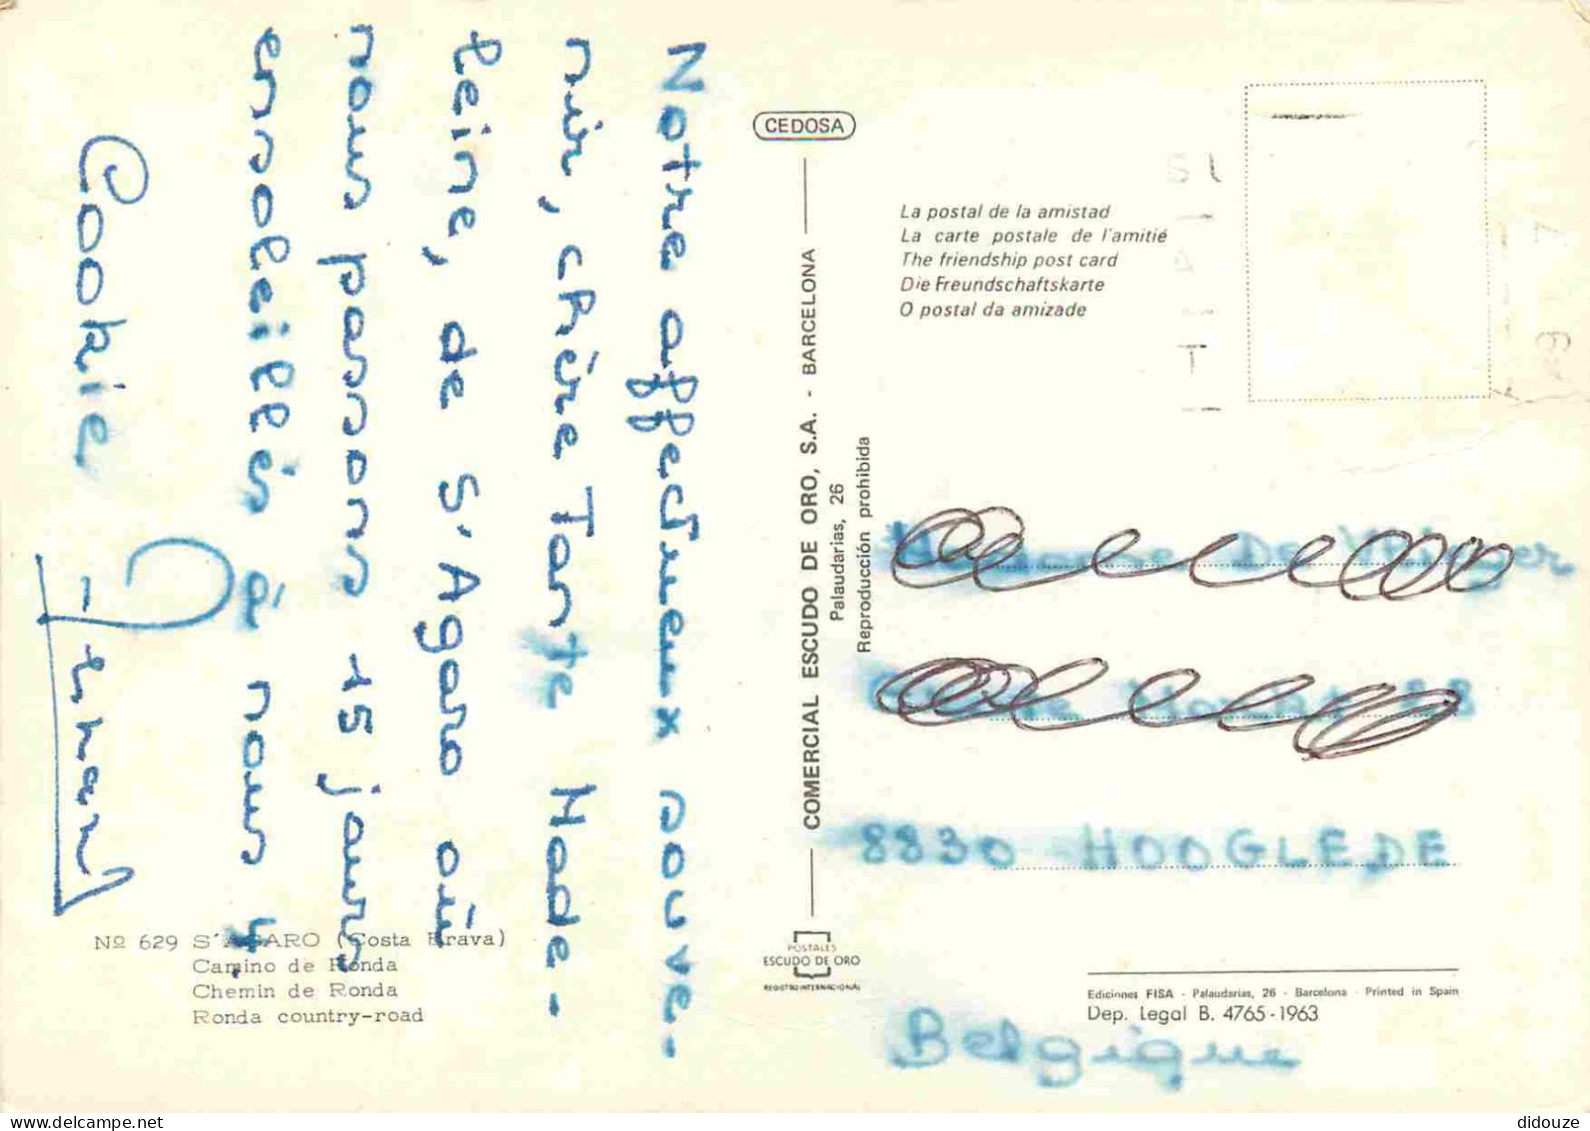 Notre affectueux souve-
nir, chère Tante Made-
leine, de S'Agaro où
nous passons 15 jours
ensoleillés à nous 4.
Cookie
CEDOSA
COMERCIAL ESCUDO DE ORO, S.A. - BARCELONA
Palaudarias, 26
Reproducción prohibida
La postal de la amistad
La carte postale de l'amitié
The friendship post card
Die Freundschaftskarte
O postal da amizade
8830 HOOGLEDE
Belgique
Nº 629 S'AGARO (Costa Brava)
Camino de Ronda
Chemin de Ronda
Ronda country-road
POSTALES
ESCUDO DE ORO
REGISTRO INTERNACIONAL
Ediciones FISA - Palaudarias, 26 - Barcelona - Printed in Spain
Dep. Legal B. 4765-1963
didouze